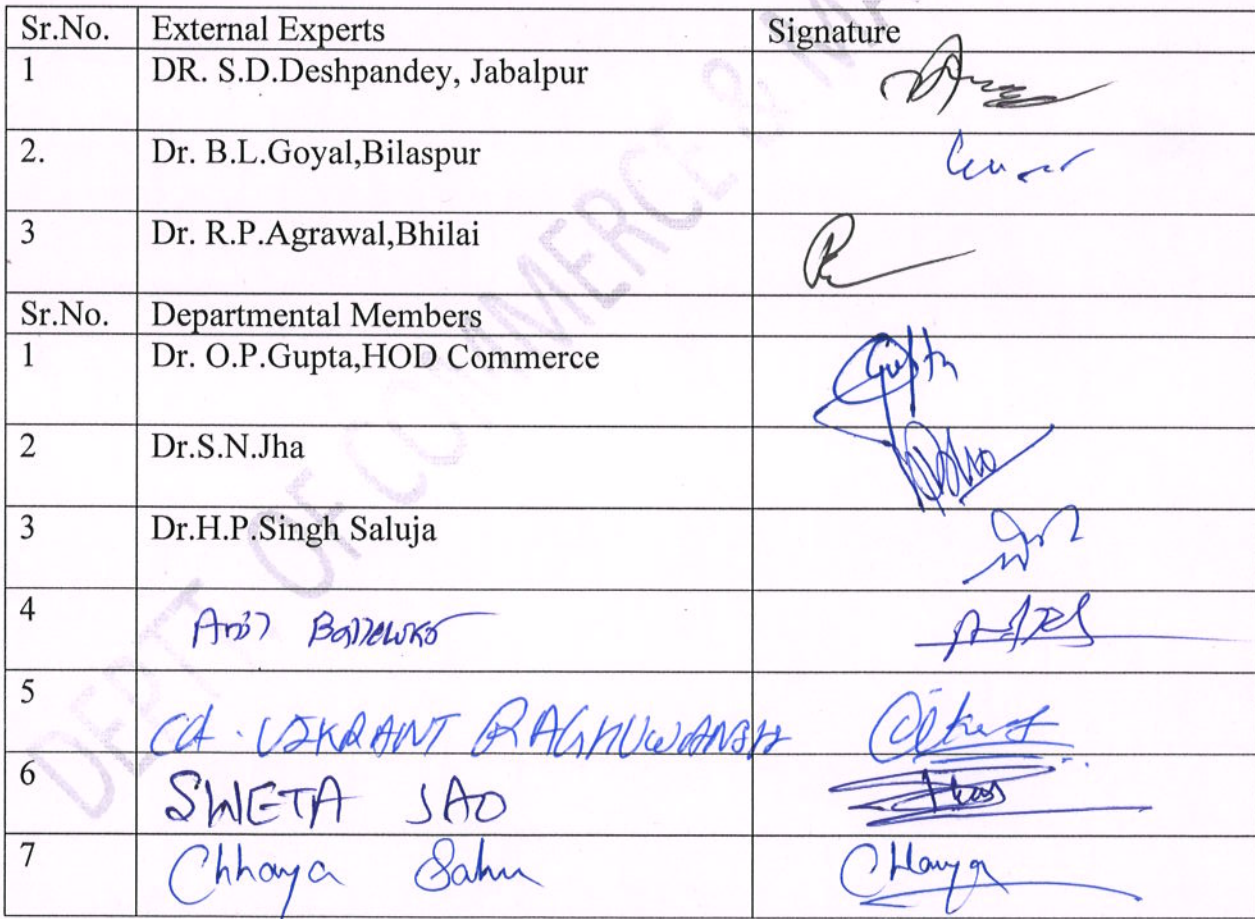 Sr.No. External Experts Signature
1 DR. S.D.Deshpandey, Jabalpur
2. Dr. B.L.Goyal,Bilaspur
3 Dr. R.P.Agrawal,Bhilai
Sr.No. Departmental Members
1 Dr. O.P.Gupta,HOD Commerce Gupta
2 Dr.S.N.Jha
3 Dr.H.P.Singh Saluja
4
5 CA. VIKRANT RAGHUWANSHI
6 SWETA SAO
7 Chhaya Sahu Chhaya
DEPTT. OF COMMERCE & MA